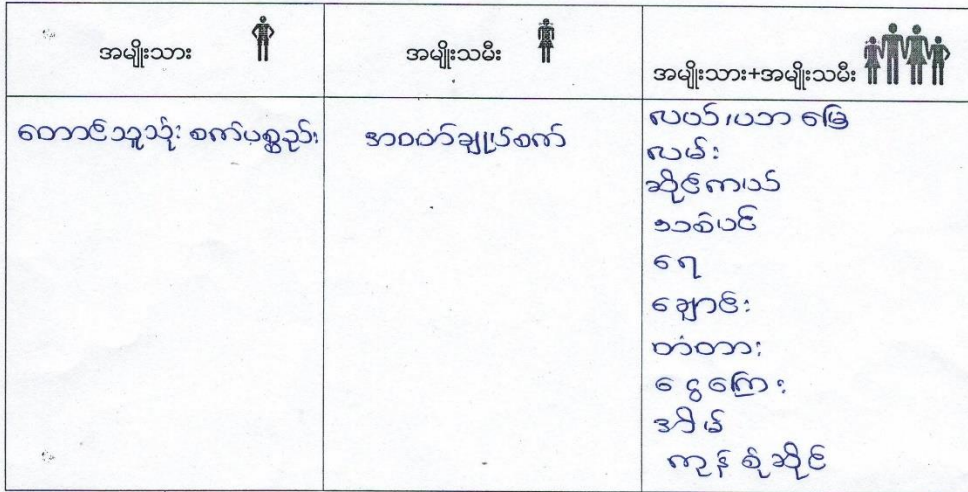 အမျိုးသား
အမျိုးသမီး
အမျိုးသား+အမျိုးသမီး
တောင်သူသုံး စက်ပစ္စည်း
အဝတ်ချုပ်စက်
လယ်၊ယာ မြေ
လမ်း
ဆိုင်ကယ်
သစ်ပင်
ရေ
ချောင်း
တံတား
ငွေကြေး
အိမ်
ကုန်စုံဆိုင်